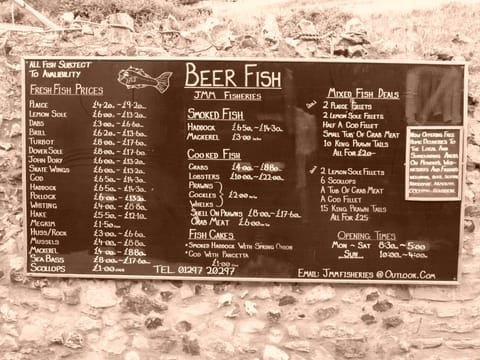 ALL FISH SUBJECT
TO AVALIBILITY
FRESH FISH PRICES
PLAICE £4.20 - £9.20
LEMON SOLE £6.00 - £13.20
DABS £3.00 - £6.60
BRILL £6.20 - £13.60
TURBOT £8.00 - £17.60
DOVER SOLE £8.00 - £17.60
JOHN DORY £6.00 - £13.20
SKATE WINGS £6.00 - £13.20
COD £6.50 - £14.30
HADDOCK £6.50 - £14.30
POLLOCK £6.00 - £13.20
WHITING £4.00 - £8.80
HAKE £5.50 - £12.10
MEGRIM £1.50
HUSS/ROCK £3.00 - £6.60
MUSSELS £4.00 - £8.80
MACKEREL £4.00 - £8.80
SEA BASS £8.00 - £17.60
SCOLLOPS £1.00 EACH
BEER FISH
JMM FISHERIES
SMOKED FISH
HADDOCK £6.50 - £14.30
MACKEREL £3.00
COOKED FISH
CRABS £4.00 - £8.80
LOBSTERS £10.00 - £22.00
PRAWNS
COCKLES £2.00
WHELKS
SHELL ON PRAWNS £8.00 - £17.60
CRAB MEAT £6.00
FISH CAKES
• SMOKED HADDOCK WITH SPRING ONION
• COD WITH PANCETTA
£1.00
TEL. 01297 20297
MIXED FISH DEALS
2 PLAICE FILLETS
2 LEMON SOLE FILLETS
HALF A COD FILLET
SMALL TUB OF CRAB MEAT
10 KING PRAWN TAILS
ALL FOR £20
2 LEMON SOLE FILLETS
6 SCOLLOPS
A TUB OF CRAB MEAT
A COD FILLET
15 KING PRAWN TAILS
ALL FOR £25
OPENING TIMES
MON - SAT 8:30 - 5:00
SUN 10:00 - 4:00
EMAIL: JMMFISHERIES@OUTLOOK.COM
NOW OFFERING FREE
HOME DELIVERIES TO
THE LOCAL AND
SURROUNDING AREAS
ON MONDAYS, WEDNESDAYS
AND FRIDAYS